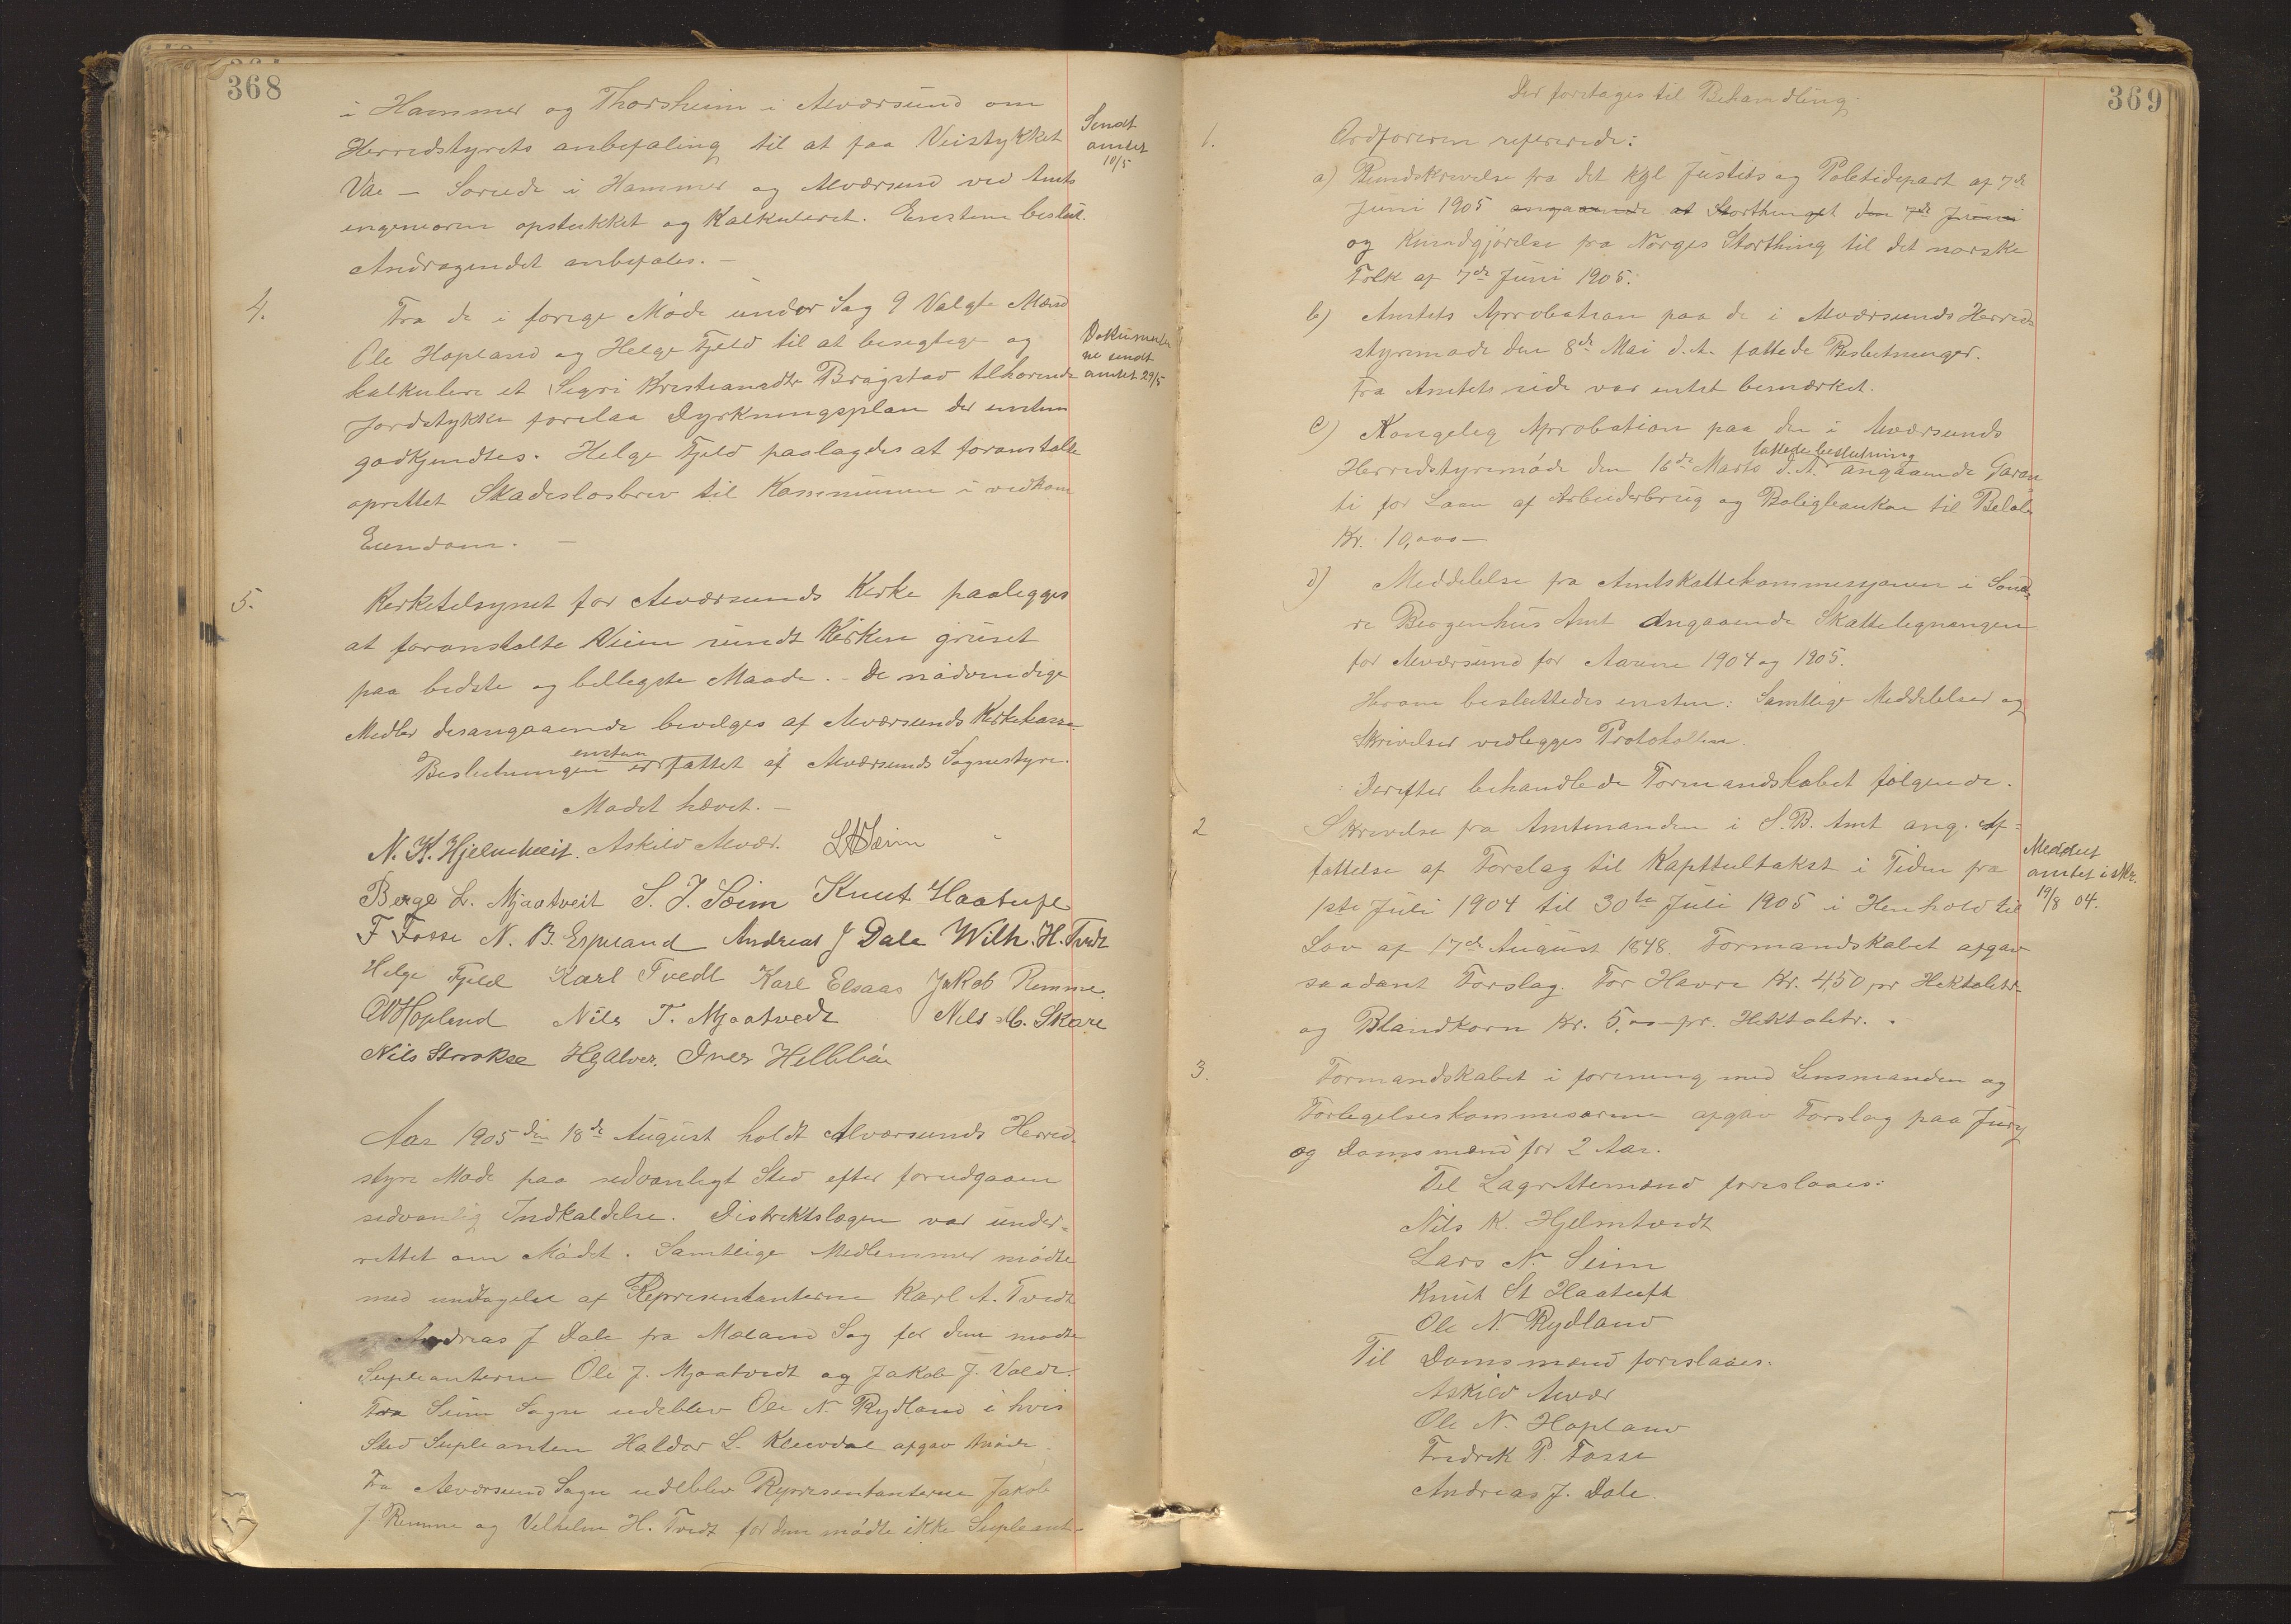 368
i Hammer og Thorsheim i Alværsund om
Herredstyrets anbefaling til at faa Veistykket
Vae — Soriede i Hammer og Alværsund ved Amts
ingeniøren opstukket og Kalkuleret. Enstem beslut.
Andragendet anbefales. —
Sendt
amtet
10/5
4.
Fra de i forige Møde under Sag 9 Valgte Mænd
Ole Hopland og Helge Fjeld til at besegtige og
kalkulere et Sigri Kristiansdtr Bragstad tilhørende
Jordstykke forelaa Dyrkningsplan der enstem
godkjendtes. Helge Fjeld paalagdes at foranstalte
oprettet Skadesløsbrev til Kommunen i vedkom
Eiendom. —
Dokumente
ne sendt
amtet 29/5
5.
Kirketilsynet for Alværsunds Kirke paalegges
at foranstalte Veien rundt Kirken gruset
paa bedste og billigste Maade. — De nødvendige
Midler desangaaende bevilges af Alværsunds Kirkekasse
enstem
Beslutningen er fattet af Alværsunds Sognestyre.
Mødet hævet. —
N. K. Hjelmtveit. Askild Alvær. L N Seim
Berge L. Mjaatveit S. J. Seim Knut Haatuft
F Fosse N. B. Espeland Andreas J Dale Wilh. H. Tvedt
Helge Fjeld Karl Tvedt Karl Elsaas Jakob Remme.
O N Hopland Nils T. Mjaatvedt Nils M. Skare
Nils Storskse H G Alver. Iver Helleliøe
Aar 1905 den 18de August holdt Alværsunds Herred-
styre Møde paa sedvanligt Sted efter forudgaaen
sedvanlig Indkaldelse. Distriktslægen var under=
rettet om Mødet. Samtlige Medlemmer mødte
med undtagelse af Representanterne Karl A. Tvedt
Andreas J Dale fra Mæland Sog for dem mødte
Supleanterne Ole J. Mjaatvedt og Jakob J. Valde.
Fra Seim Sogn udeblev Ole N. Rydland i hvis
Sted Supleanten Haldor L. Kleivdal afgav Møde.
Fra Alværsund Sogn udeblev Representanterne Jakob
J. Remme og Vilhelm H. Tvedt for dem mødte ikke Supleant-
369
Der foretages til Behandling.
1.
Ordføreren refererede:
a) Rundskrivelse fra det Kgl Justits og Politidepart af 7de
Juni 1905 angaaende at Storthinget den 7de Juni
og Kundgjørelse fra Norges Storthing til det norske
Folk af 7de Juni 1905.
b) Amtets Aprobation paa de i Alværsunds Herreds
styremøde den 8de Mai d.A. fattede Beslutninger.
Fra Amtets side var intet bemærket.
c) Kongelig Aprobation paa den i Alværsunds
fattede beslutning
Herredstyremøde den 16de Marts d.A. angaaende Garan
ti for Laan af Arbeiderbrug og Boligbanken til Beløb
Kr. 10,000 —
d) Meddelelse fra Amtskattekommissjonen i Sønd-
re Bergenhus Amt angaaende Skattelegningen
for Alværsund for Aarene 1904 og 1905.
Herom besluttedes enstem: Samtlige Meddelelser og
Skrivelser vedlegges Protokollen.
Derefter behandlede Formandskabet følgende.
2
Skrivelse fra Amtmanden i S.B. Amt ang. Af=
fattelse af Forslag til Kapitultakst i Tiden fra
1ste Juli 1904 til 30te Juli 1905 i Henhold til
Lov af 17de August 1848. Formandskabet afgav
saadant Forslag. For Havre Kr. 4,50 pr Hektoliter
og Blandkorn Kr. 5.00 pr. Hektolitr.
Meddelt
amtet i skr.
19/8 04.
3.
Formandskabet i forening med Lensmanden og
Forligelseskommisærne afgav Forslag paa Jury
og Domsmænd for 2 Aar.
Til Lagrettemænd foreslaaes:
Nils K. Hjelmtvedt
Lars N. Seim
Knut St Haatuft
Ole N. Rydland
Til Domsmænd foreslaaes.
Askild Alvær
Ole N. Hopland
Fredrik P. Fosse
Andreas J. Dale.